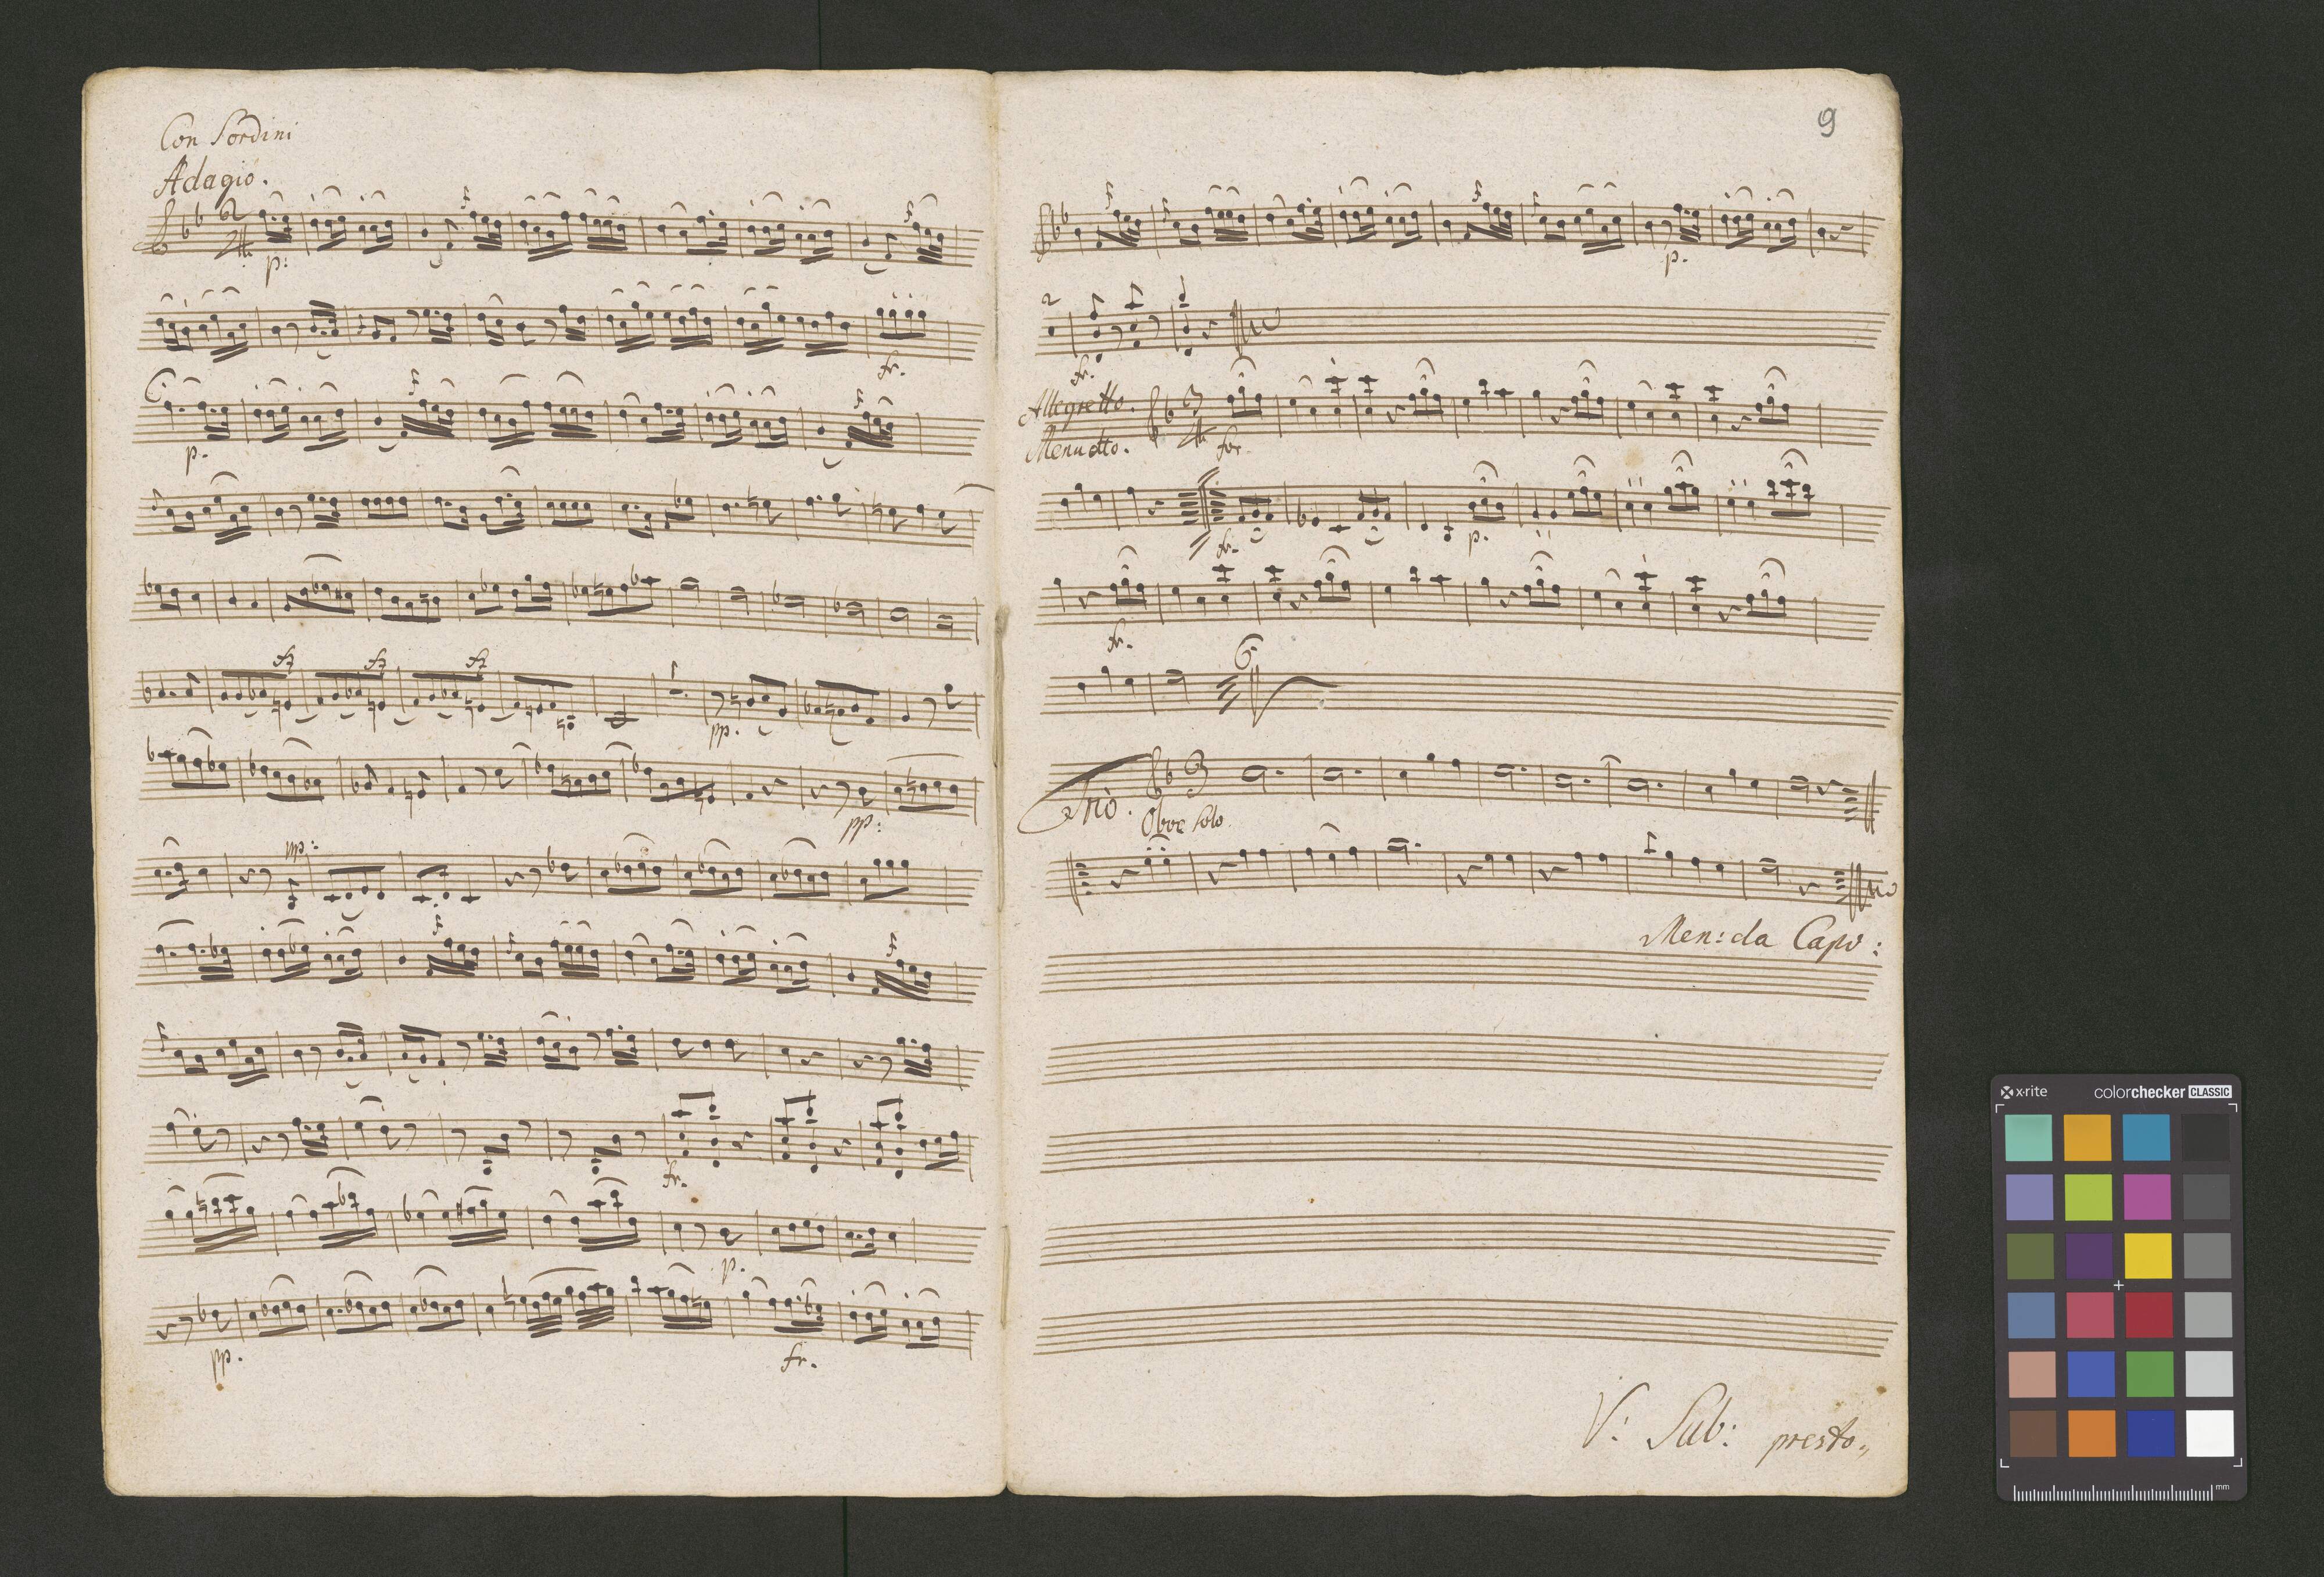 Con Sordini
Adagio.
2
4
p:
fr.
p.
fz fz fz
pp.
pp:
pp:
fr.
p.
pp. fr.
9
p.
2
fr.
Allegretto.
Menuetto.
3
4
for.
fr. p.
fr.
Trio.
3
Oboe Solo
Men: da Capo:
V: Sub: presto„
x-rite colorchecker CLASSIC
mm